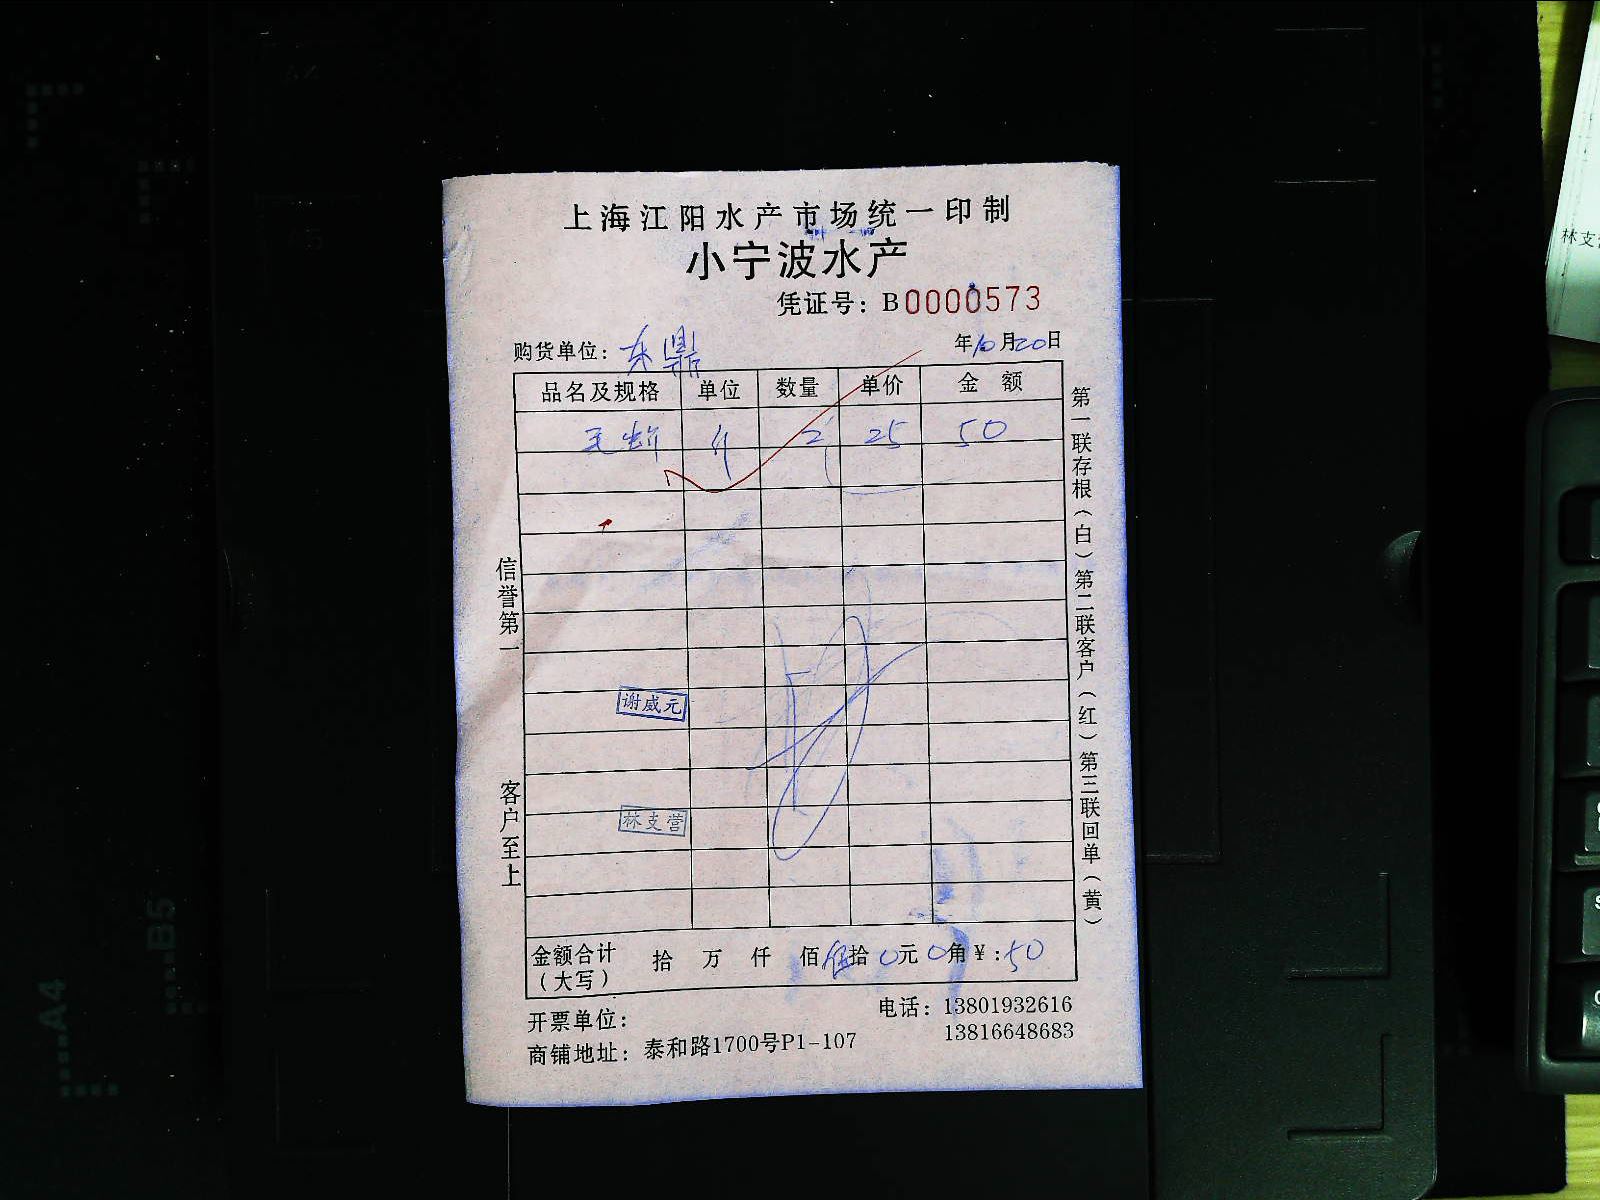 上海江阳水产市场统一印制
小宁波水产
凭证号：B0000573
购货单位：东鼎 年10月20日
品名及规格 单位 数量 单价 金额
斤 2 25 50
信誉第一
客户至上
谢威元
林支营
第一联存根（白）第二联客户（红）第三联回单（黄）
金额合计（大写） 拾 万 仟 佰伍拾0元0角¥:50
开票单位：
电话：13801932616
13816648683
商铺地址：泰和路1700号P1-107
A4
B5
林支